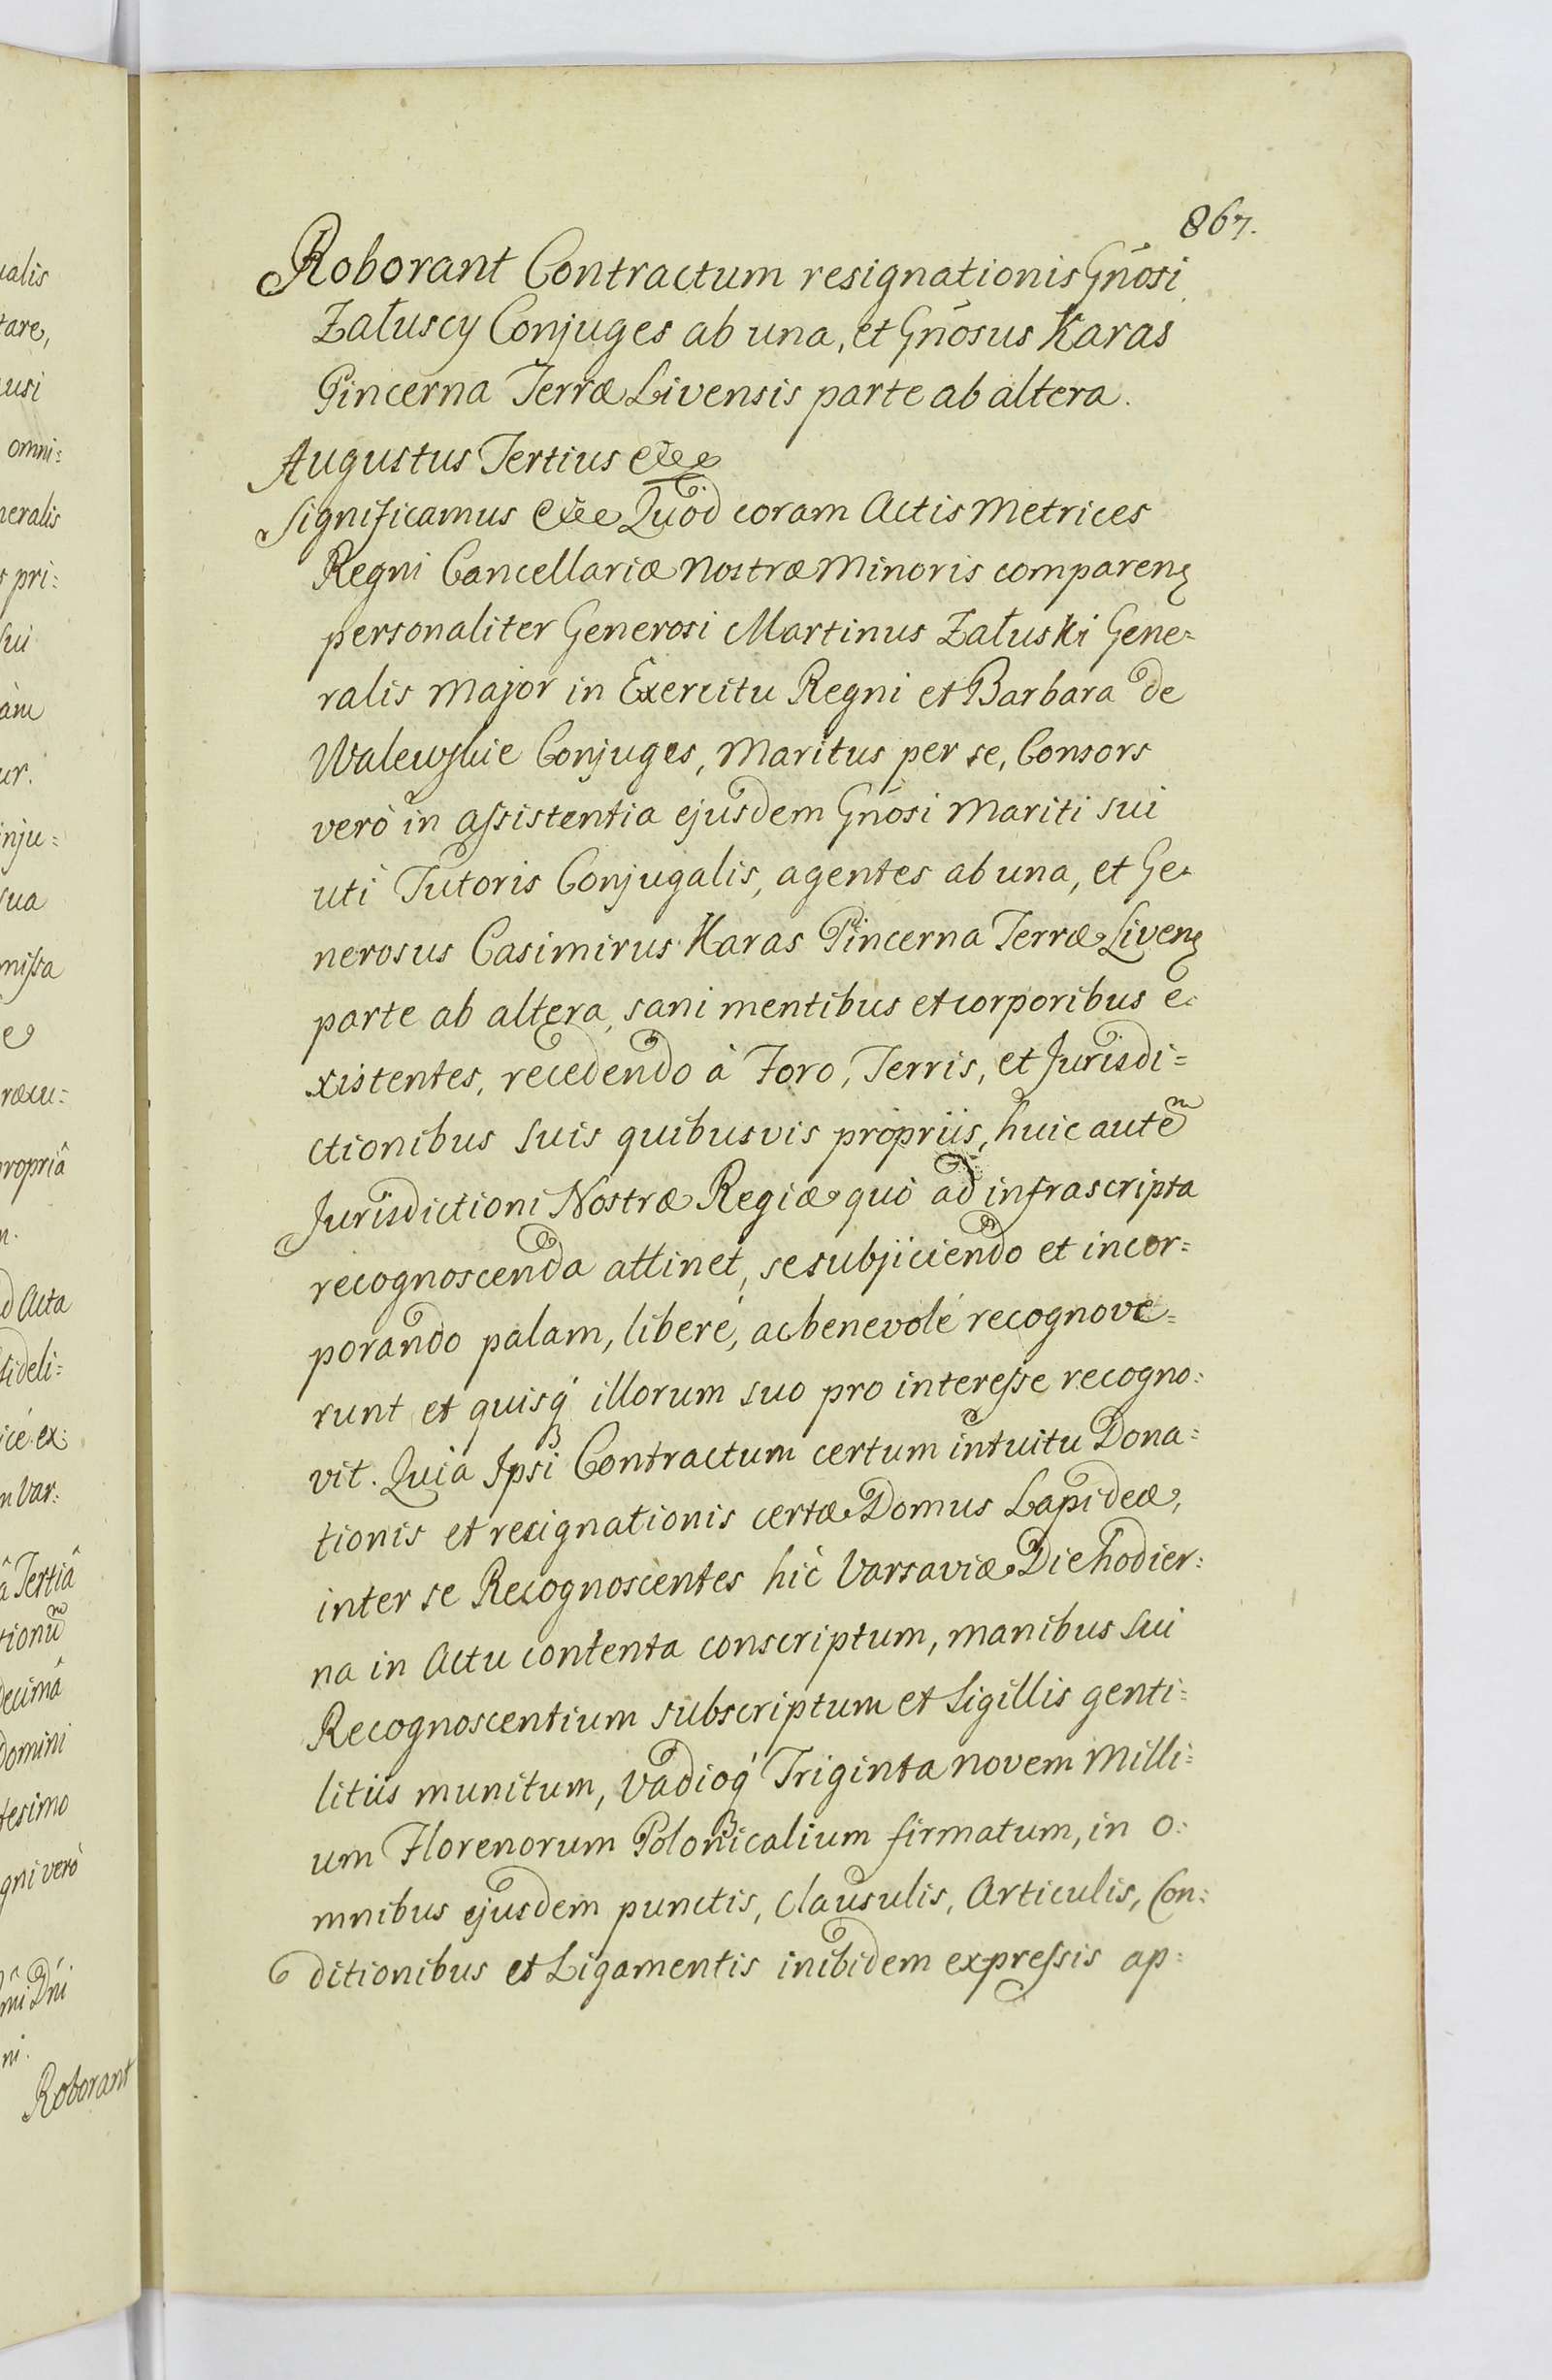 ualis
tare,
usi
omni:
neralis
s pri:
sui
àm
ur.
inju=
sua
missa
e
ræcu:
propriâ
m.
d Acta
fideli:
icé ex:
n Var:
â Tertiâ
tionu᷉m
decimâ
Domini
tesimo
gni verò
mi Dni
ni.
Roborant
867.
Roborant Contractum resignationis Gn̄osi
Załuscy Conjuges ab una, et Gn̄osus Karas
Pincerna Terræ Livensis parte ab altera.
Augustus Tertius &c &c
Significamus &c &c Quod coram Actis Metrices
Regni Cancellariæ Nostræ Minoris comparenꝫ
personaliter Generosi Martinus Załuski Gene=
ralis Major in Exercitu Regni et Barbara de
Walewskie Conjuges, Maritus per se, Consors
verò in assistentia ejusdem Gn̄osi Mariti sui
uti Tutoris Conjugalis, agentes ab una, et Ge=
nerosus Casimirus Karas Pincerna Terræ Livenꝫ
parte ab altera, sani mentibus et corporibus e=
xistentes, recedendo à Foro, Terris, et Jurisdi=
ctionibus suis quibusvis propriis, huic autem
Jurisdictioni Nostræ Regiæ quò ad infrascripta
recognoscenda attinet, se subjiciendo et incor=
porando palam, liberé, ac benevolé recognove=
runt et quisq́ illorum suo pro interesse recogno:
vit. Quia Ipsi Contractum certum intuitu Dona=
tionis et resignationis certæ Domus Lapideæ,
inter se Recognoscentes hic Varsaviæ Die hodier:
na in Actu contenta conscriptum, manibus sui
Recognoscentium subscriptum et Sigillis genti=
litiis munitum, Vadioq́ Triginta novem Milli=
um Florenorum Polonicalium firmatum, in o:
mnibus ejusdem punctis, Clausulis, Articulis, Con:
ditionibus et Ligamentis inibidem expressis ap=